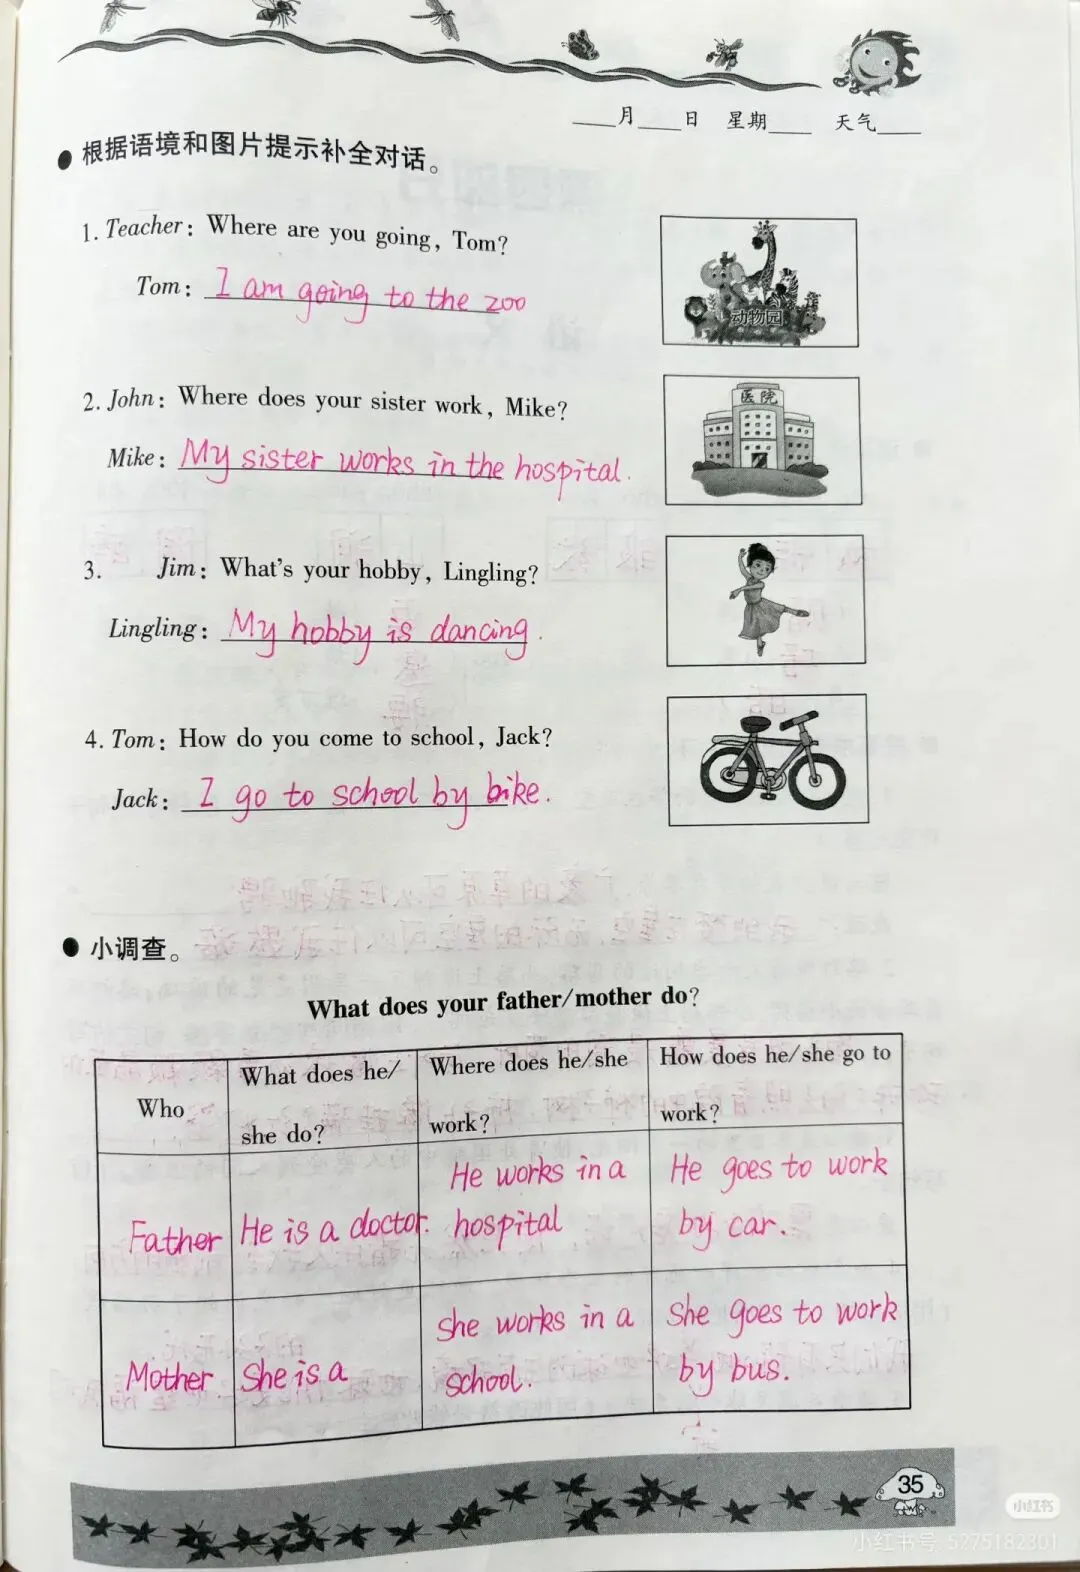 ____月____日 星期____ 天气____
● 根据语境和图片提示补全对话。
1. Teacher: Where are you going, Tom?
Tom: I am going to the zoo
动物园
2. John: Where does your sister work, Mike?
医院
Mike: My sister works in the hospital.
3. Jim: What's your hobby, Lingling?
Lingling: My hobby is dancing.
4. Tom: How do you come to school, Jack?
Jack: I go to school by bike.
● 小调查。
What does your father/mother do?
Who
What does he/
she do?
Where does he/she
work?
How does he/she go to
work?
Father
He is a doctor.
He works in a
hospital
He goes to work
by car.
Mother
She is a
she works in a
school.
She goes to work
by bus.
35
小红书
小红书号: 5275182301